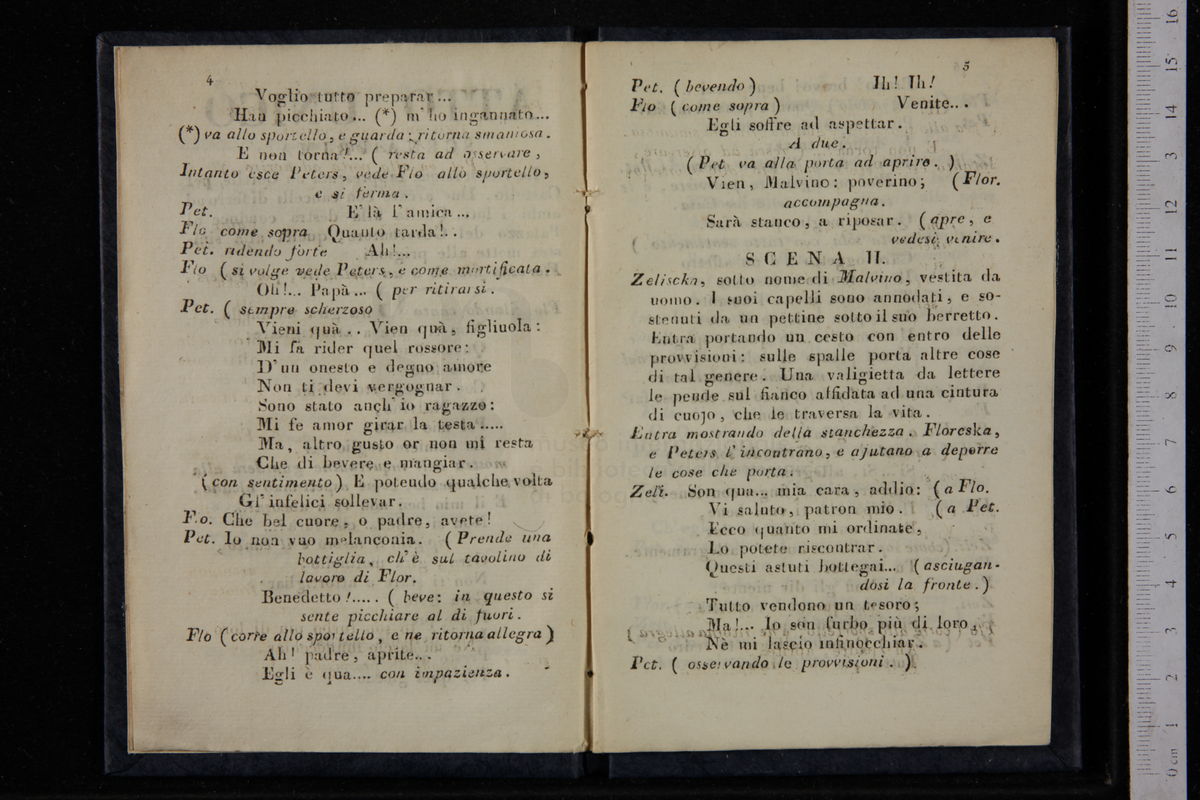 4
Voglio tutto preparar...
Han picchiato... (*) m'ho ingannato...
(*) va allo sportello, e guarda: ritorna smaniosa.
E non torna!... ( resta ad osservare,
Intanto esce Peters, vede Flo allo sportello,
e si ferma.
Pet. E' là l'amica...
Flo come sopra Quanto tarda!..
Pet. ridendo forte Ah!...
Flo ( si volge vede Peters, e come mortificata.
Oh!... Papà... ( per ritirarsi.
Pet. ( sempre scherzoso
Vieni quà.. Vien quà, figliuola:
Mi fa rider quel rossore:
D'un onesto e degno amore
Non ti devi vergognar.
Sono stato anch'io ragazzo:
Mi fe amor girar la testa.....
Ma, altro gusto or non mi resta
Che di bevere e mangiar.
( con sentimento ) E potendo qualche volta
Gl'infelici sollevar.
Flo. Che bel cuore, o padre, avete!
Pet. Io non vuo melanconia. ( Prende una
bottiglia, ch'è sul tavolino di
lavoro di Flor.
Benedetto!..... ( beve: in questo si
sente picchiare al di fuori.
Flo ( corre allo sportello, e ne ritorna allegra )
Ah! padre, aprite...
Egli è qua.... con impazienza.
5
Pet. ( bevendo ) Ih! Ih!
Flo ( come sopra ) Venite...
Egli soffre ad aspettar.
A due.
( Pet va alla porta ad aprire. )
Vien, Malvino: poverino; (Flor.
accompagna.
Sarà stanco, a riposar. ( apre, e
vedesi venire.
SCENA II.
Zelischa, sotto nome di Malvino, vestita da
uomo. I suoi capelli sono annodati, e so-
stenuti da un pettine sotto il suo berretto.
Entra portando un cesto con entro delle
provvisioni: sulle spalle porta altre cose
di tal genere. Una valigietta da lettere
le pende sul fianco affidata ad una cintura
di cuojo, che le traversa la vita.
Entra mostrando della stanchezza. Floreska,
e Peters l'incontrano, e ajutano a deporre
le cose che porta.
Zeli. Son qua... mia cara, addio: ( a Flo.
Vi saluto, patron mio. ( a Pet.
Ecco quanto mi ordinate,
Lo potete riscontrar.
Questi astuti bottegai... ( asciugan-
dosi la fronte. )
Tutto vendono un tesoro;
Ma!... Io son furbo più di loro,
Nè mi lascio infinocchiar.
Pet. ( osservando le provvisioni. )